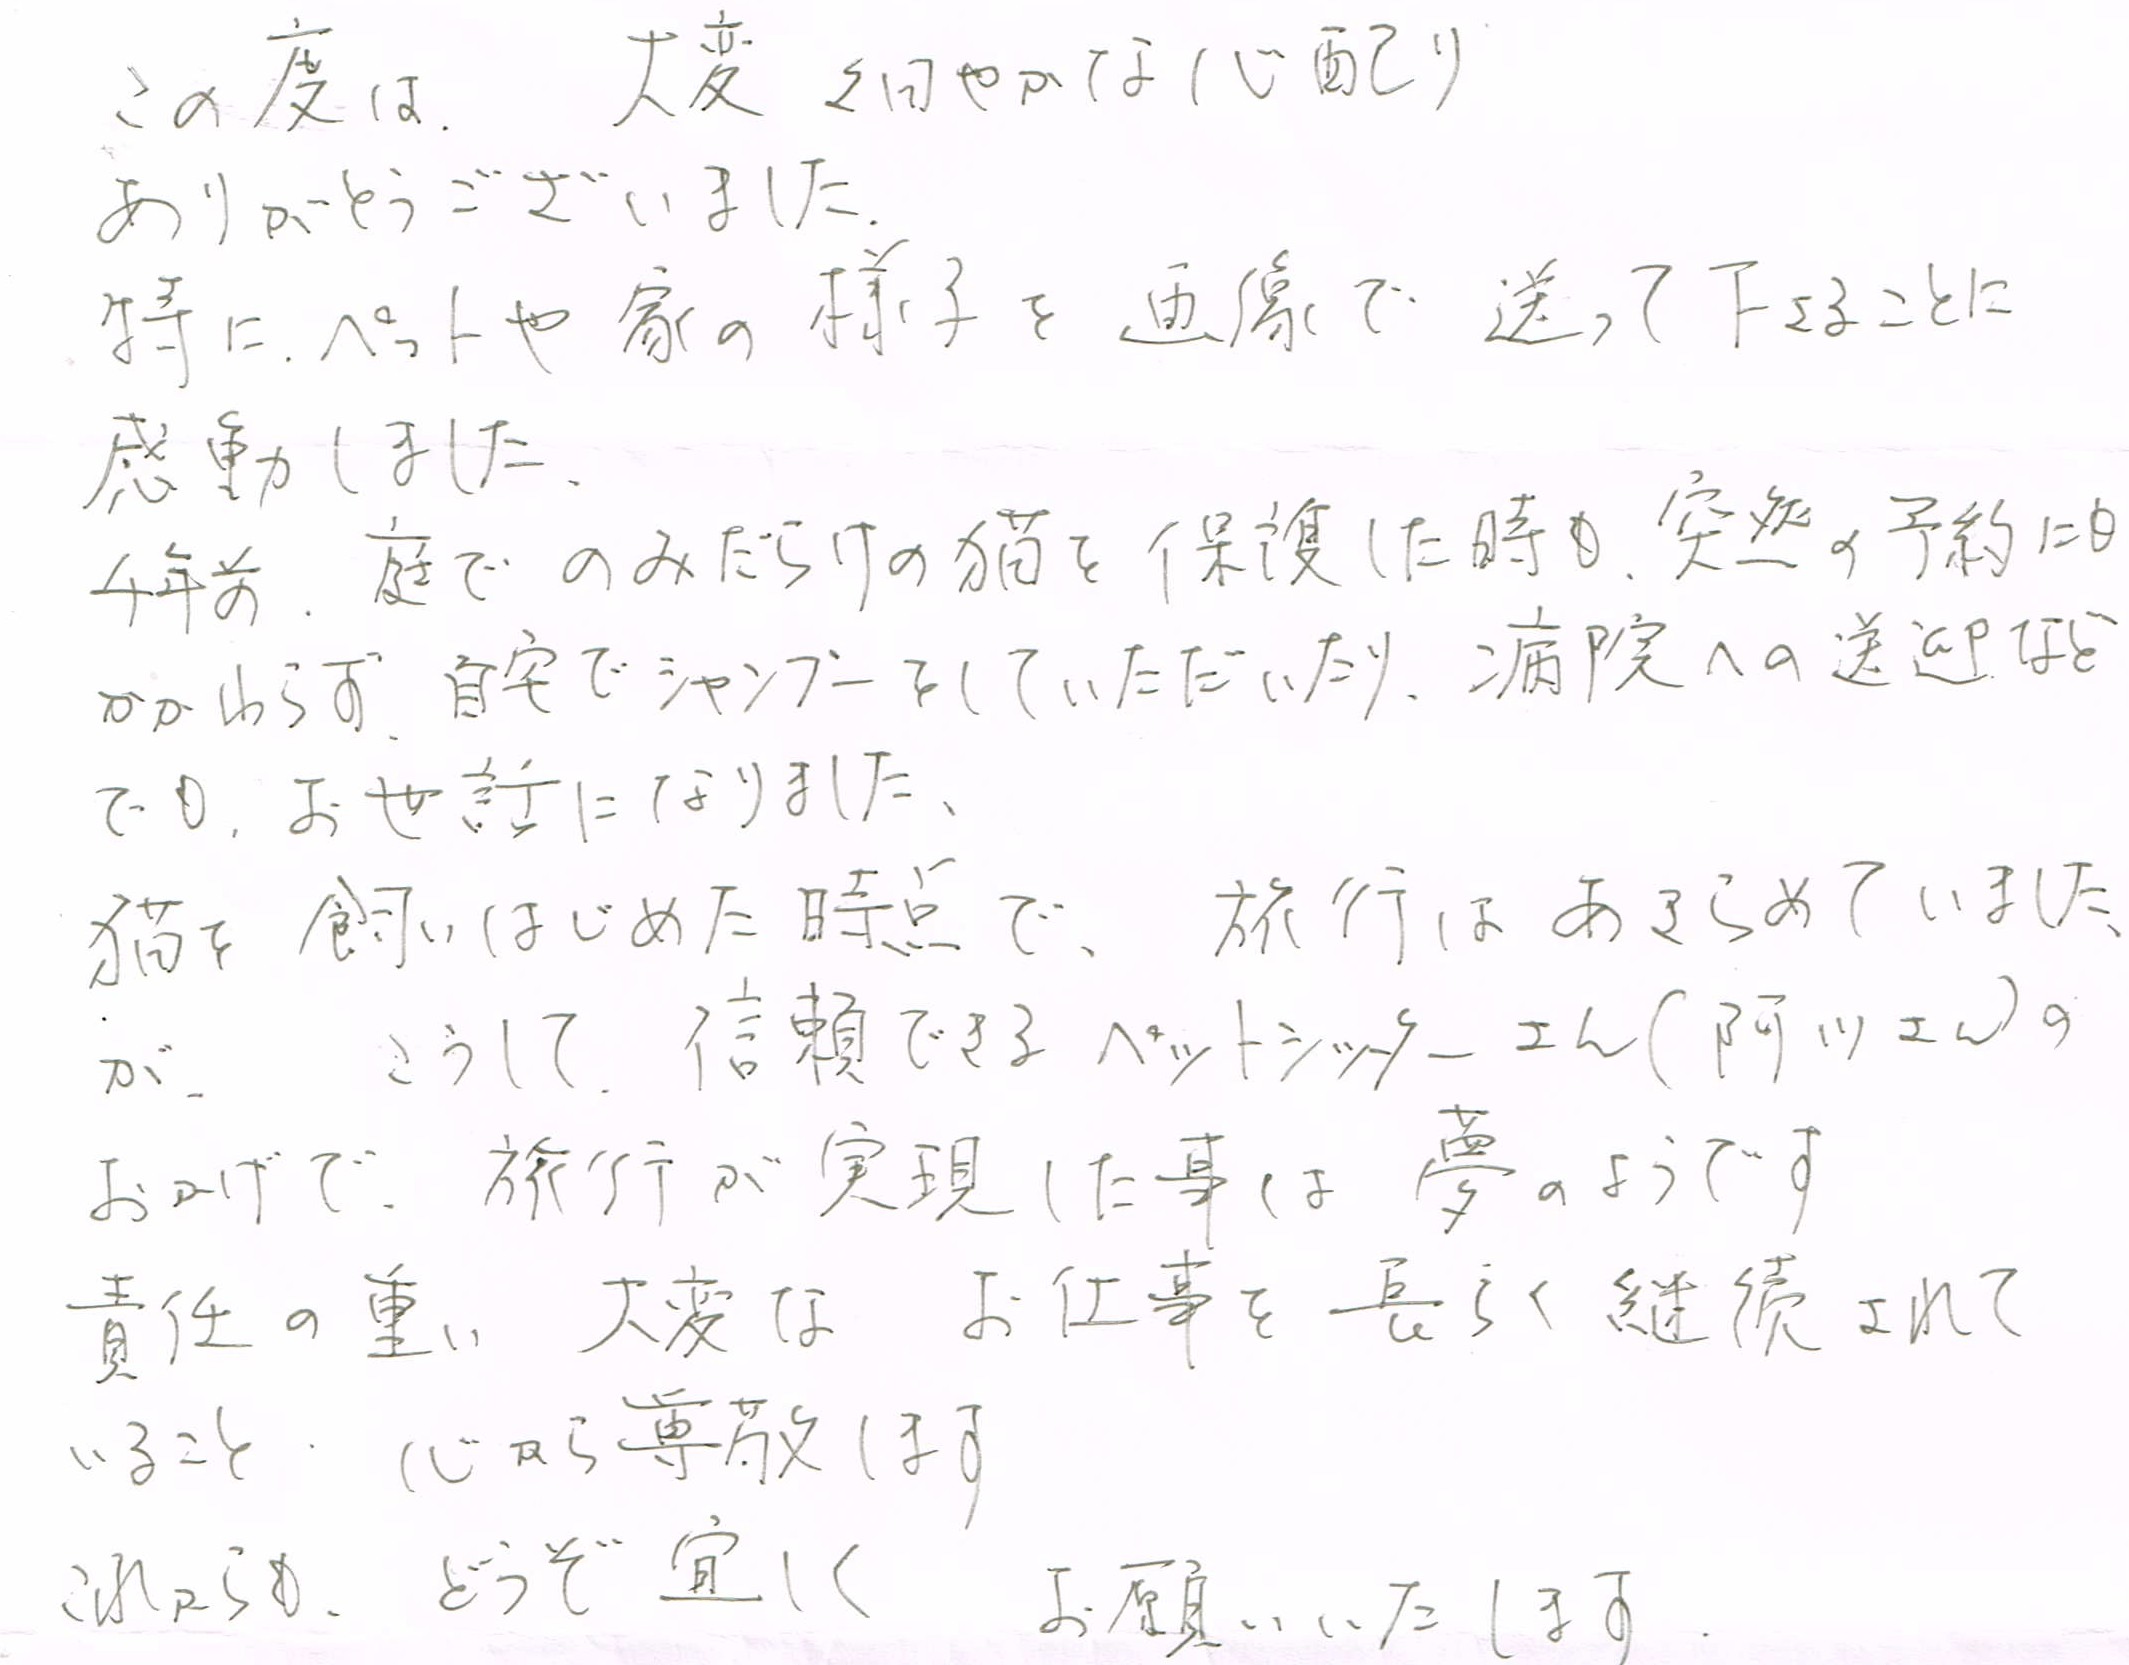 この度は、大変細やかな心配り
ありがとうございました。
特に、ペットや家の様子を画像で送って下さることに
感動しました。
4年前、庭でのみだらけの猫を保護した時も、突然の予約にも
かかわらず、自宅でシャンプーをしていただいたり、病院への送迎など
でも、お世話になりました、
猫を飼いはじめた時点で、旅行はあきらめていました、
が、こうして、信頼できるペットシッターさん(阿川さん)の
おかげで、旅行が実現した事は夢のようです
責任の重い大変なお仕事を長らく継続されて
いること、心から尊敬します
これからも、どうぞ宜しくお願いいたします。